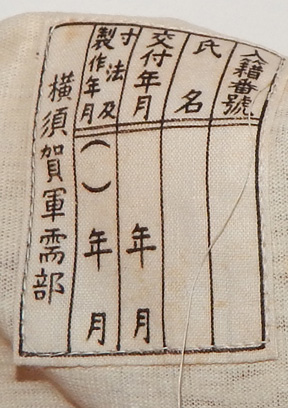 入籍番號
氏名
交付年月
年月
寸法及
製作年月
( )年月
横須賀軍需部